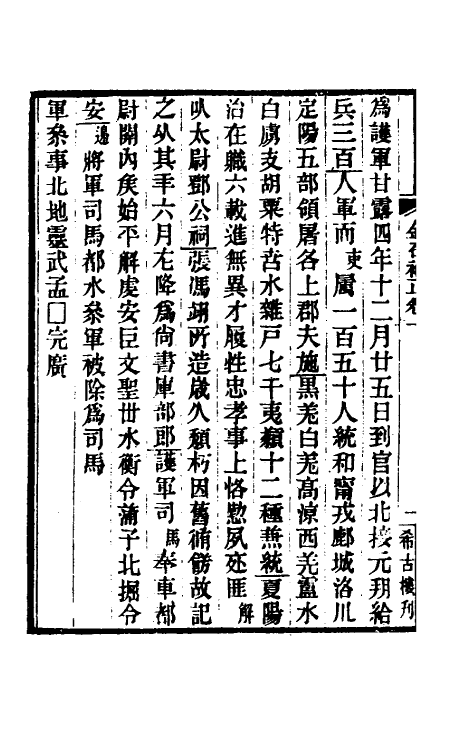 金石補正卷一
一希古樓刋
為護軍甘露四年十二月廿五日到官以北接元朔給
兵三百人軍而吏屬一百五十人統和甯戎鄜城洛川
定陽五部領屠各上郡夫施黑羌白羌高涼西羌盧水
白虜支胡粟特苦水雜戶七千夷類十二種兼統夏陽
治在職六載進無異才履性忠孝事上恪懃夙夜匪解
以太尉鄧公祠張馮翊所造歲久頹朽因舊脩飭故記
之以其年六月左降為尚書庫部郎護軍司馬奉車都
尉關內矦始平解虔安臣文聖世水衡令蒲子北掘令
安邊將軍司馬都水叅軍被除為司馬
軍叅事北地靈武孟□完廣